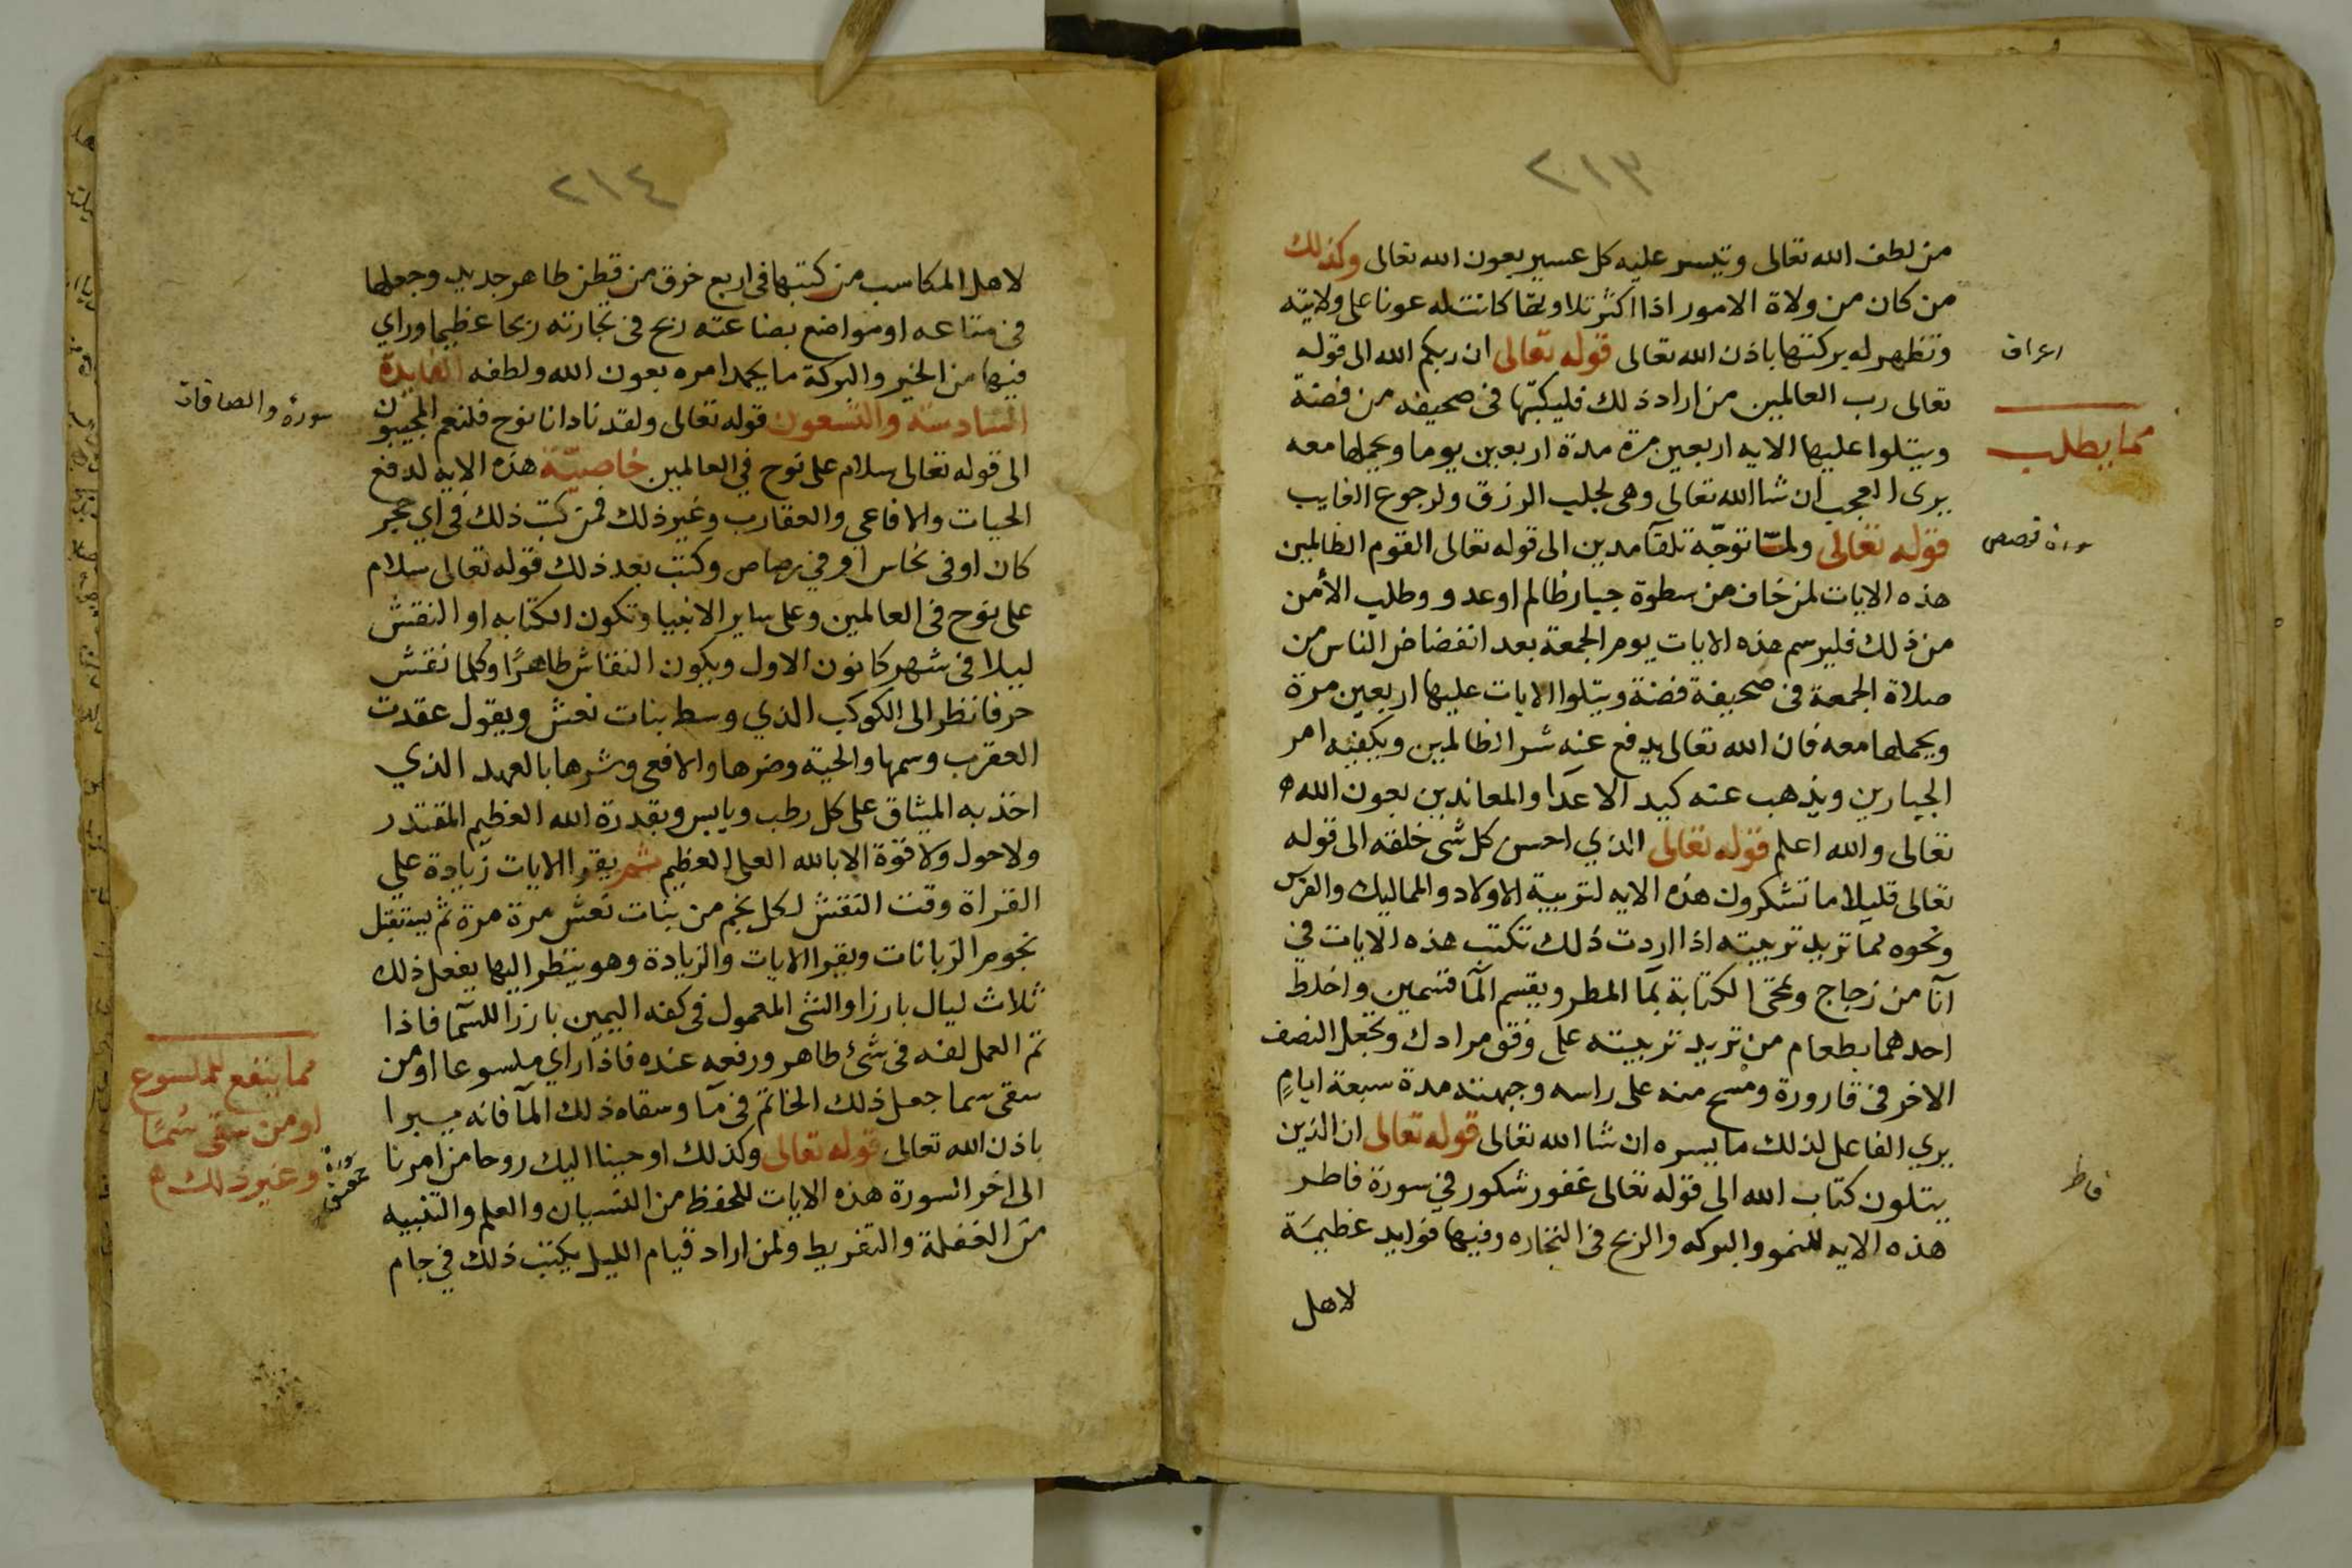 ٢١٣
من لطف الله تعالى وتيسر عليه كل عسير بعون الله تعالى وكذلك
من كان من ولاة الامور اذا اكثر تلاوتها كانت له عونا على ولايته
وتظهر له بركتها باذن الله تعالى قوله تعالى ان ربكم الله الى قوله
اعراف
تعالى رب العالمين من اراد ذلك فليكتبها فى صحيفه من فضة
مما يطلب
ويتلوا عليها الايه اربعين مرة مدة اربعين يوما ويحملها معه
يرى العجب ان شا الله تعالى وهى لجلب الرزق ولرجوع الغايب
قوله تعالى ولما توجه تلقآ مدين الى قوله تعالى القوم الظالمين
سورة قصص
هذه الايات لمن خاف من سطوة جبار ظالم او عدو وطلب الأمن
من ذلك فليرسم هذه الايات يوم الجمعة بعد انفضاض الناس من
صلاة الجمعة فى صحيفة فضة ويتلوا الايات عليها اربعين مرة
ويحملها معه فان الله تعالى يدفع عنه شر الظالمين ويكفيه امر
الجبارين ويذهب عنه كيد الاعدآ والمعاندين بعون الله
تعالى والله اعلم قوله تعالى الذي احسن كل شى خلقه الى قوله
تعالى قليلا ما تشكرون هذه الايه لتربية الاولاد والمماليك والفرس
ونحوه لما تريد تربيته اذا اردت ذلك تكتب هذه الايات في
آنا من زجاج وتمحى الكتابة بمآ المطر ويقسم المآ قسمين واخلط
احدهما بطعام من تريد تربيته على وفق مرادك وتجعل النصف
الاخر فى قارورة ومسح منه على راسه وجبهته مدة سبعة ايام
يري الفاعل لذلك ما يسره ان شا الله تعالى قوله تعالى ان الذين
يتلون كتاب الله الى قوله تعالى غفور شكور في سورة فاطر
فاطر
هذه الايه للنمو والبركه والربح فى التجاره وفيها فوايد عظيمة
لاهل
٢١٤
لاهل المكاسب من كتبها فى اربع خرق من قطن طاهر جديد وجعلها
فى متاعه او مواضع بضاعته ربح فى تجارته ربحا عظيما وراي
فيها من الخير والبركة ما يحمد امره بعون الله ولطفه الفايدة
السادسة والتسعون قوله تعالى ولقد نادانا نوح فلنعم المجيبون
سورة والصافات
الى قوله تعالى سلام على نوح في العالمين خاصية هذه الايه لدفع
الحيات والافاعي والعقارب وغير ذلك فمن كتب ذلك في اي حجر
كان او فى نحاس او في رصاص وكتب بعد ذلك قوله تعالى سلام
على نوح فى العالمين وعلى ساير الانبيا وتكون الكتابه او النقش
ليلا فى شهر كانون الاول ويكون النقاش طاهرًا وكلما نقش
حرفا نظر الى الكوكب الذي وسط بنات نعش ويقول عقدت
العقرب وسمها والحية وضرها والافعى وشرها بالعهد الذي
اخذ به الميثاق على كل رطب ويابس وبقدرة الله العظيم المقتدر
ولاحول ولا قوة الا بالله العلى العظيم ثم يقرا الايات زيادة علي
القراة وقت النقش لكل نجم من بنات نعش مرة مرة ثم يستقبل
نجوم الزبانات ويقرا الايات والزيادة وهو ينظر اليها يفعل ذلك
ثلاث ليال بارزا والشى المعمول فى كفه اليمين بارزا للسما فاذا
تم العمل لفه فى شئ طاهر ورفعه عنده فاذا راي ملسوعا او من
مما ينفع للملسوع
سقى سما جعل ذلك الخاتم فى مآ وسقاه ذلك المآ فانه يبرا
او من سقى سمًا
وغير ذلك
باذن الله تعالى قوله تعالى وكذلك اوحينا اليك روحا من امرنا
سورة حمعسق
الى اخر السورة هذه الايات للحفظ من النسيان والعلم والتنبيه
من الغفلة والتفريط ولمن اراد قيام الليل يكتب ذلك في جام